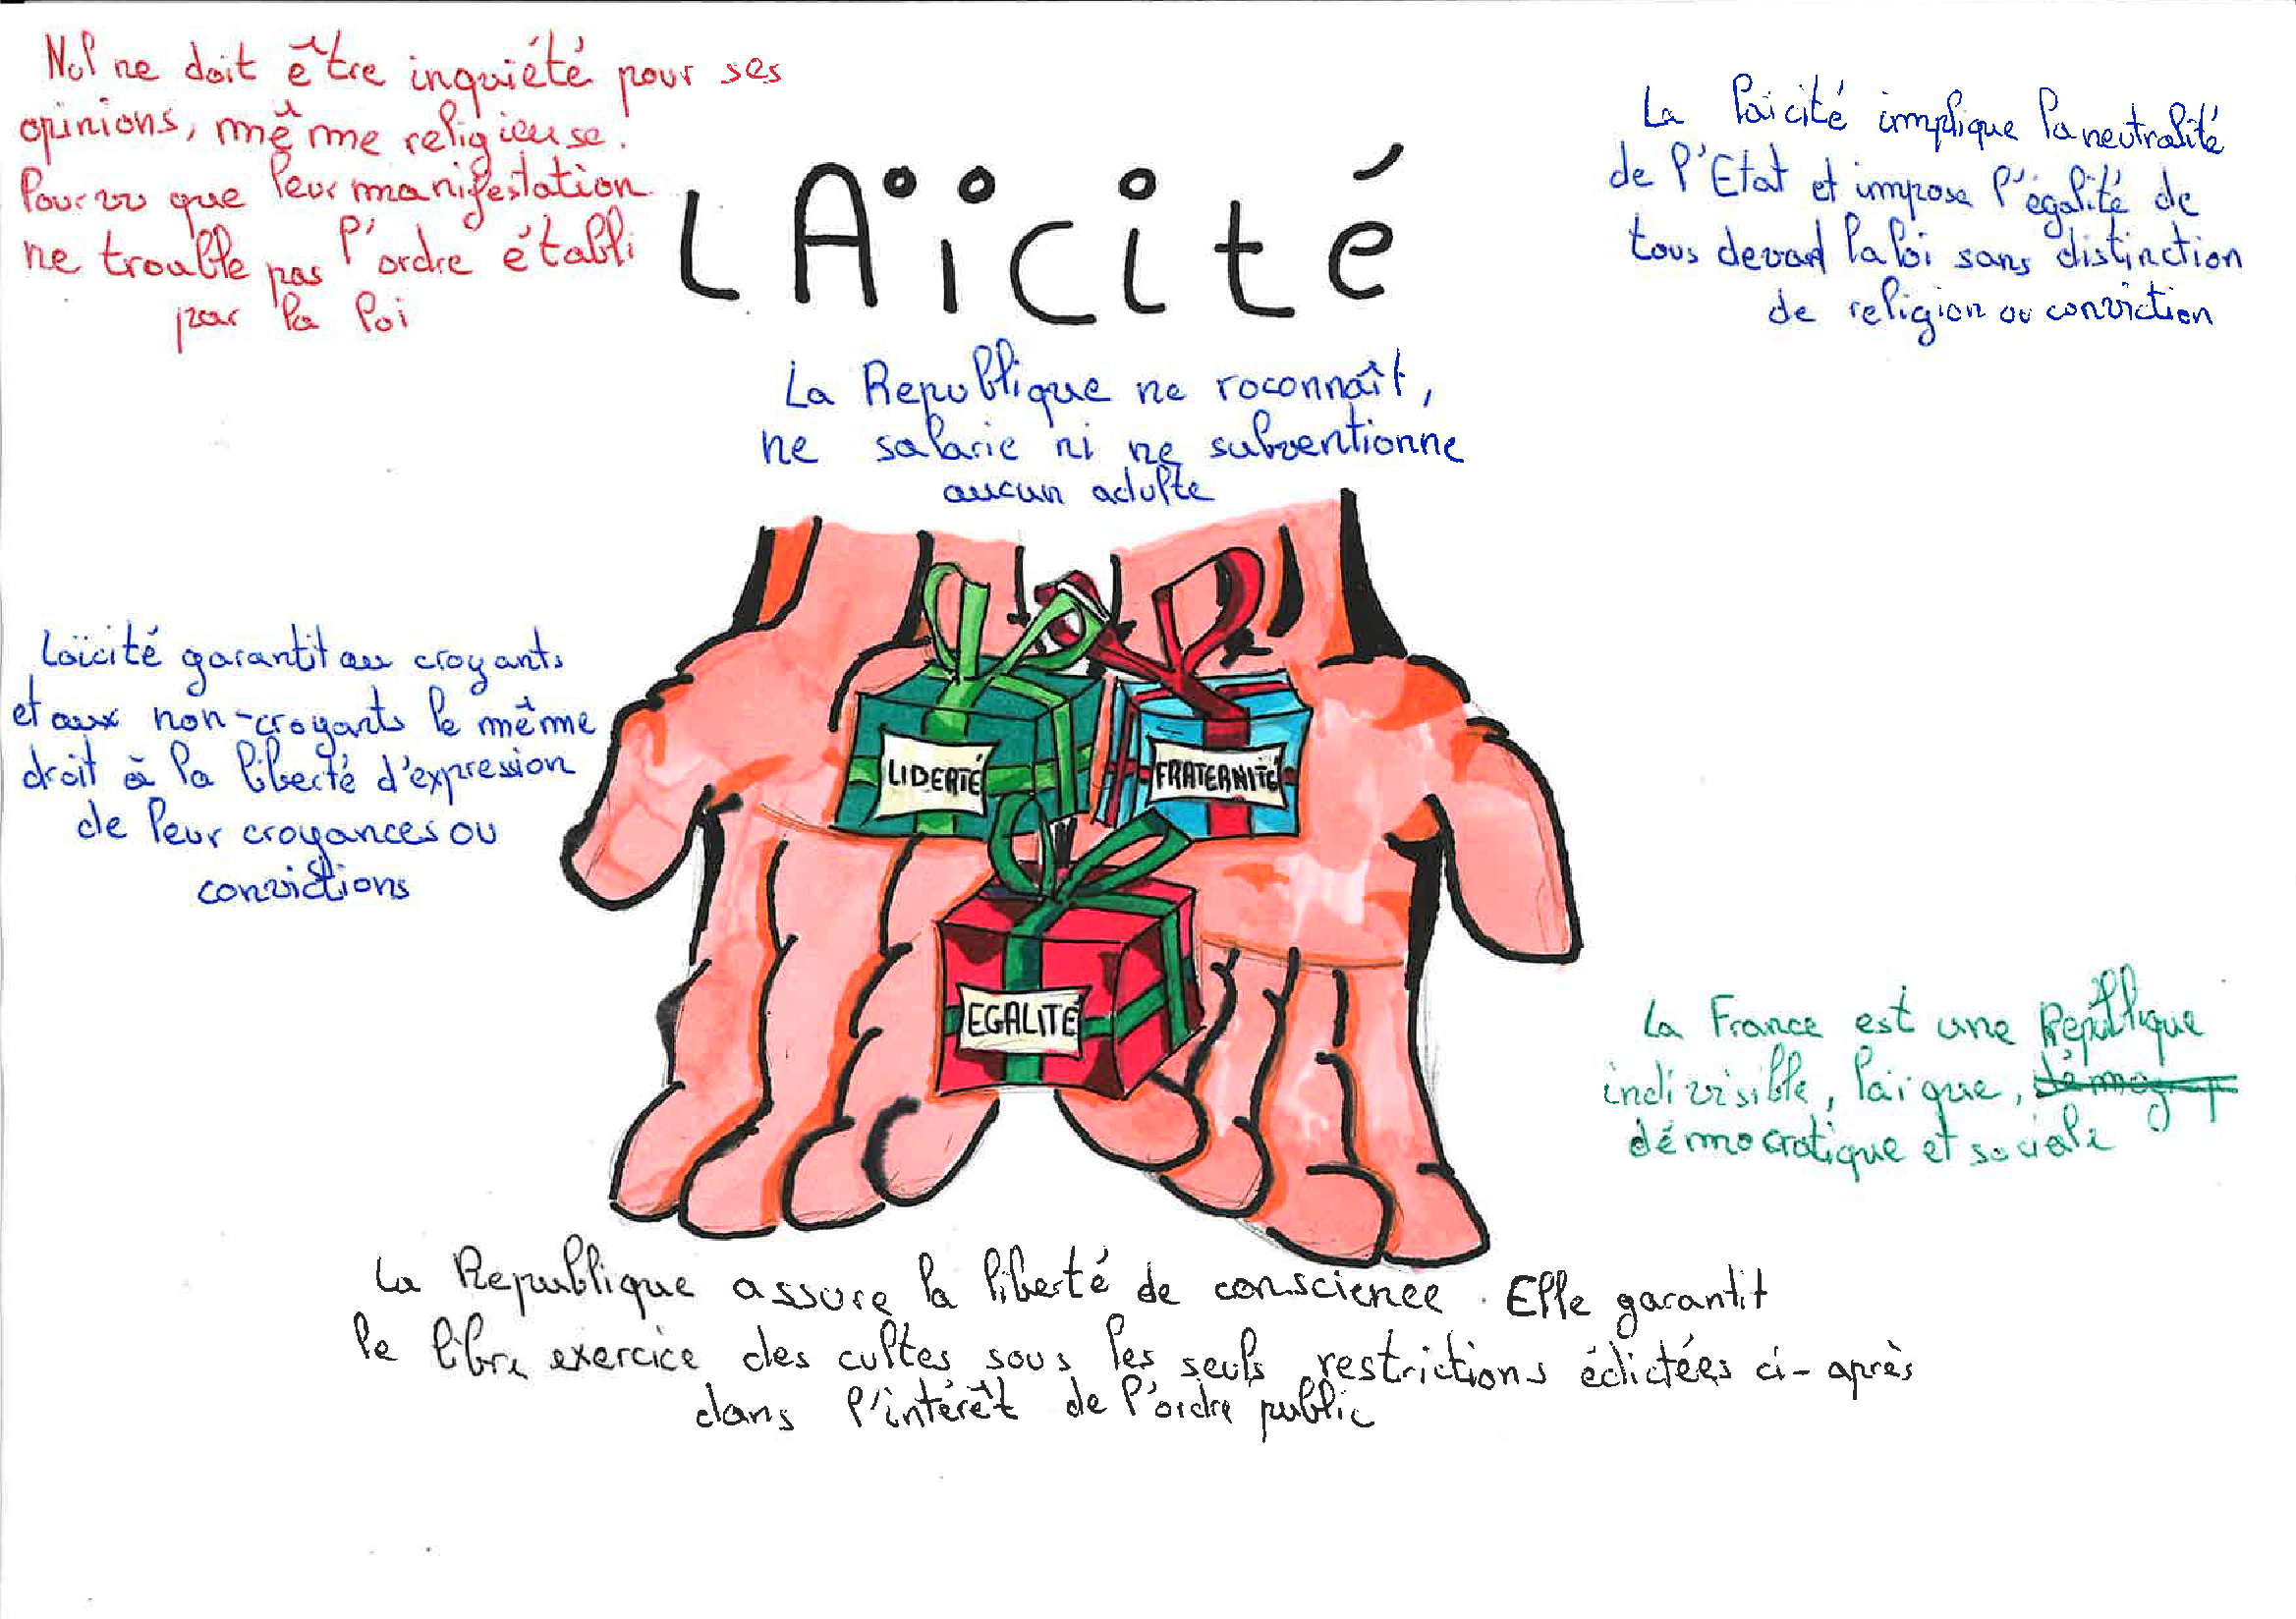 Nul ne doit être inquiété pour ses
opinions, même religieuse.
Pourvu que leur manifestation
ne trouble pas l'ordre établi
par la loi
LAïcité
La laïcité implique la neutralité
de l'Etat et impose l'égalité de
tous devant la loi sans distinction
de religion ou conviction
La Republique ne roconnaît,
ne salarie ni ne subventionne
aucun adulte
Laïcité garantit au croyants
et aux non-croyants le même
droit à la liberté d'expression
de leur croyances ou
convictions
LIBERTÉ
FRATERNITÉ
EGALITÉ
La France est une République
indivisible, laïque,
démocratique et sociale
La Republique assure la liberté de conscience. Elle garantit
le libre exercice des cultes sous les seuls restrictions édictées ci-après
dans l'intérêt de l'ordre public